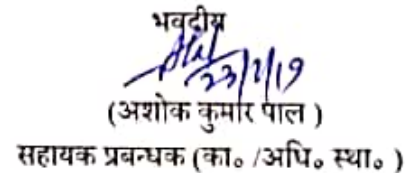 भवदीय
23/1/19
(अशोक कुमार पाल )
सहायक प्रबन्धक (का० /अधि० स्था० )